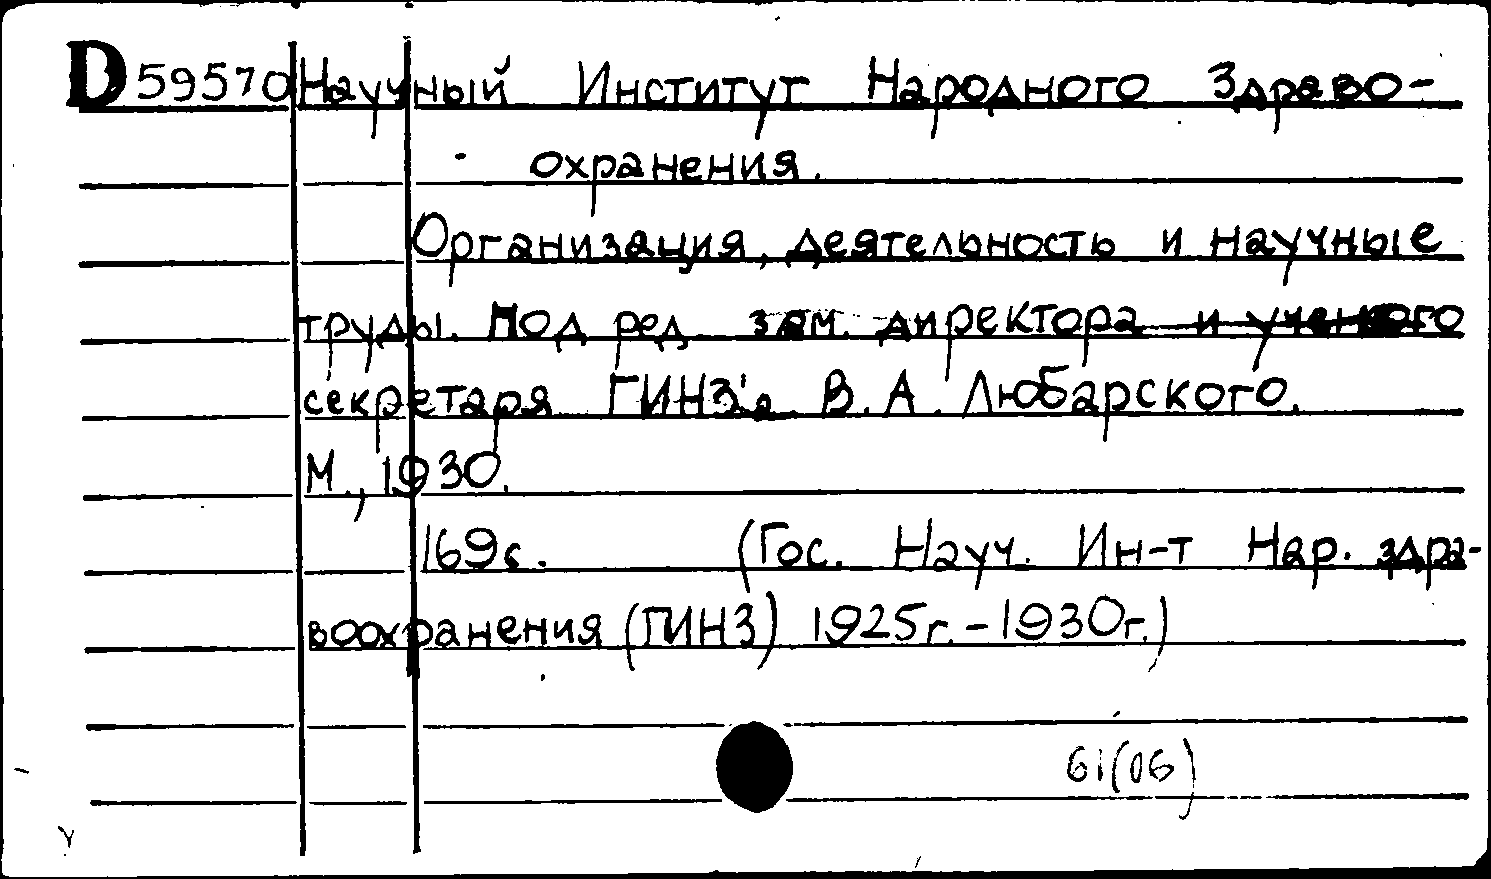 D 59570 Научный Институт Народного Здраво-
охранения.
Организация, деятельность и научные
труды. Под ред. зам. директора и ученого
секретаря ГИНЗ'а В. А. Любарского.
М., 1930.
169 с. (Гос. Науч. Ин-т Нар. здра-
воохранения (ГИНЗ) 1925г. - 1930г.)
61(06)